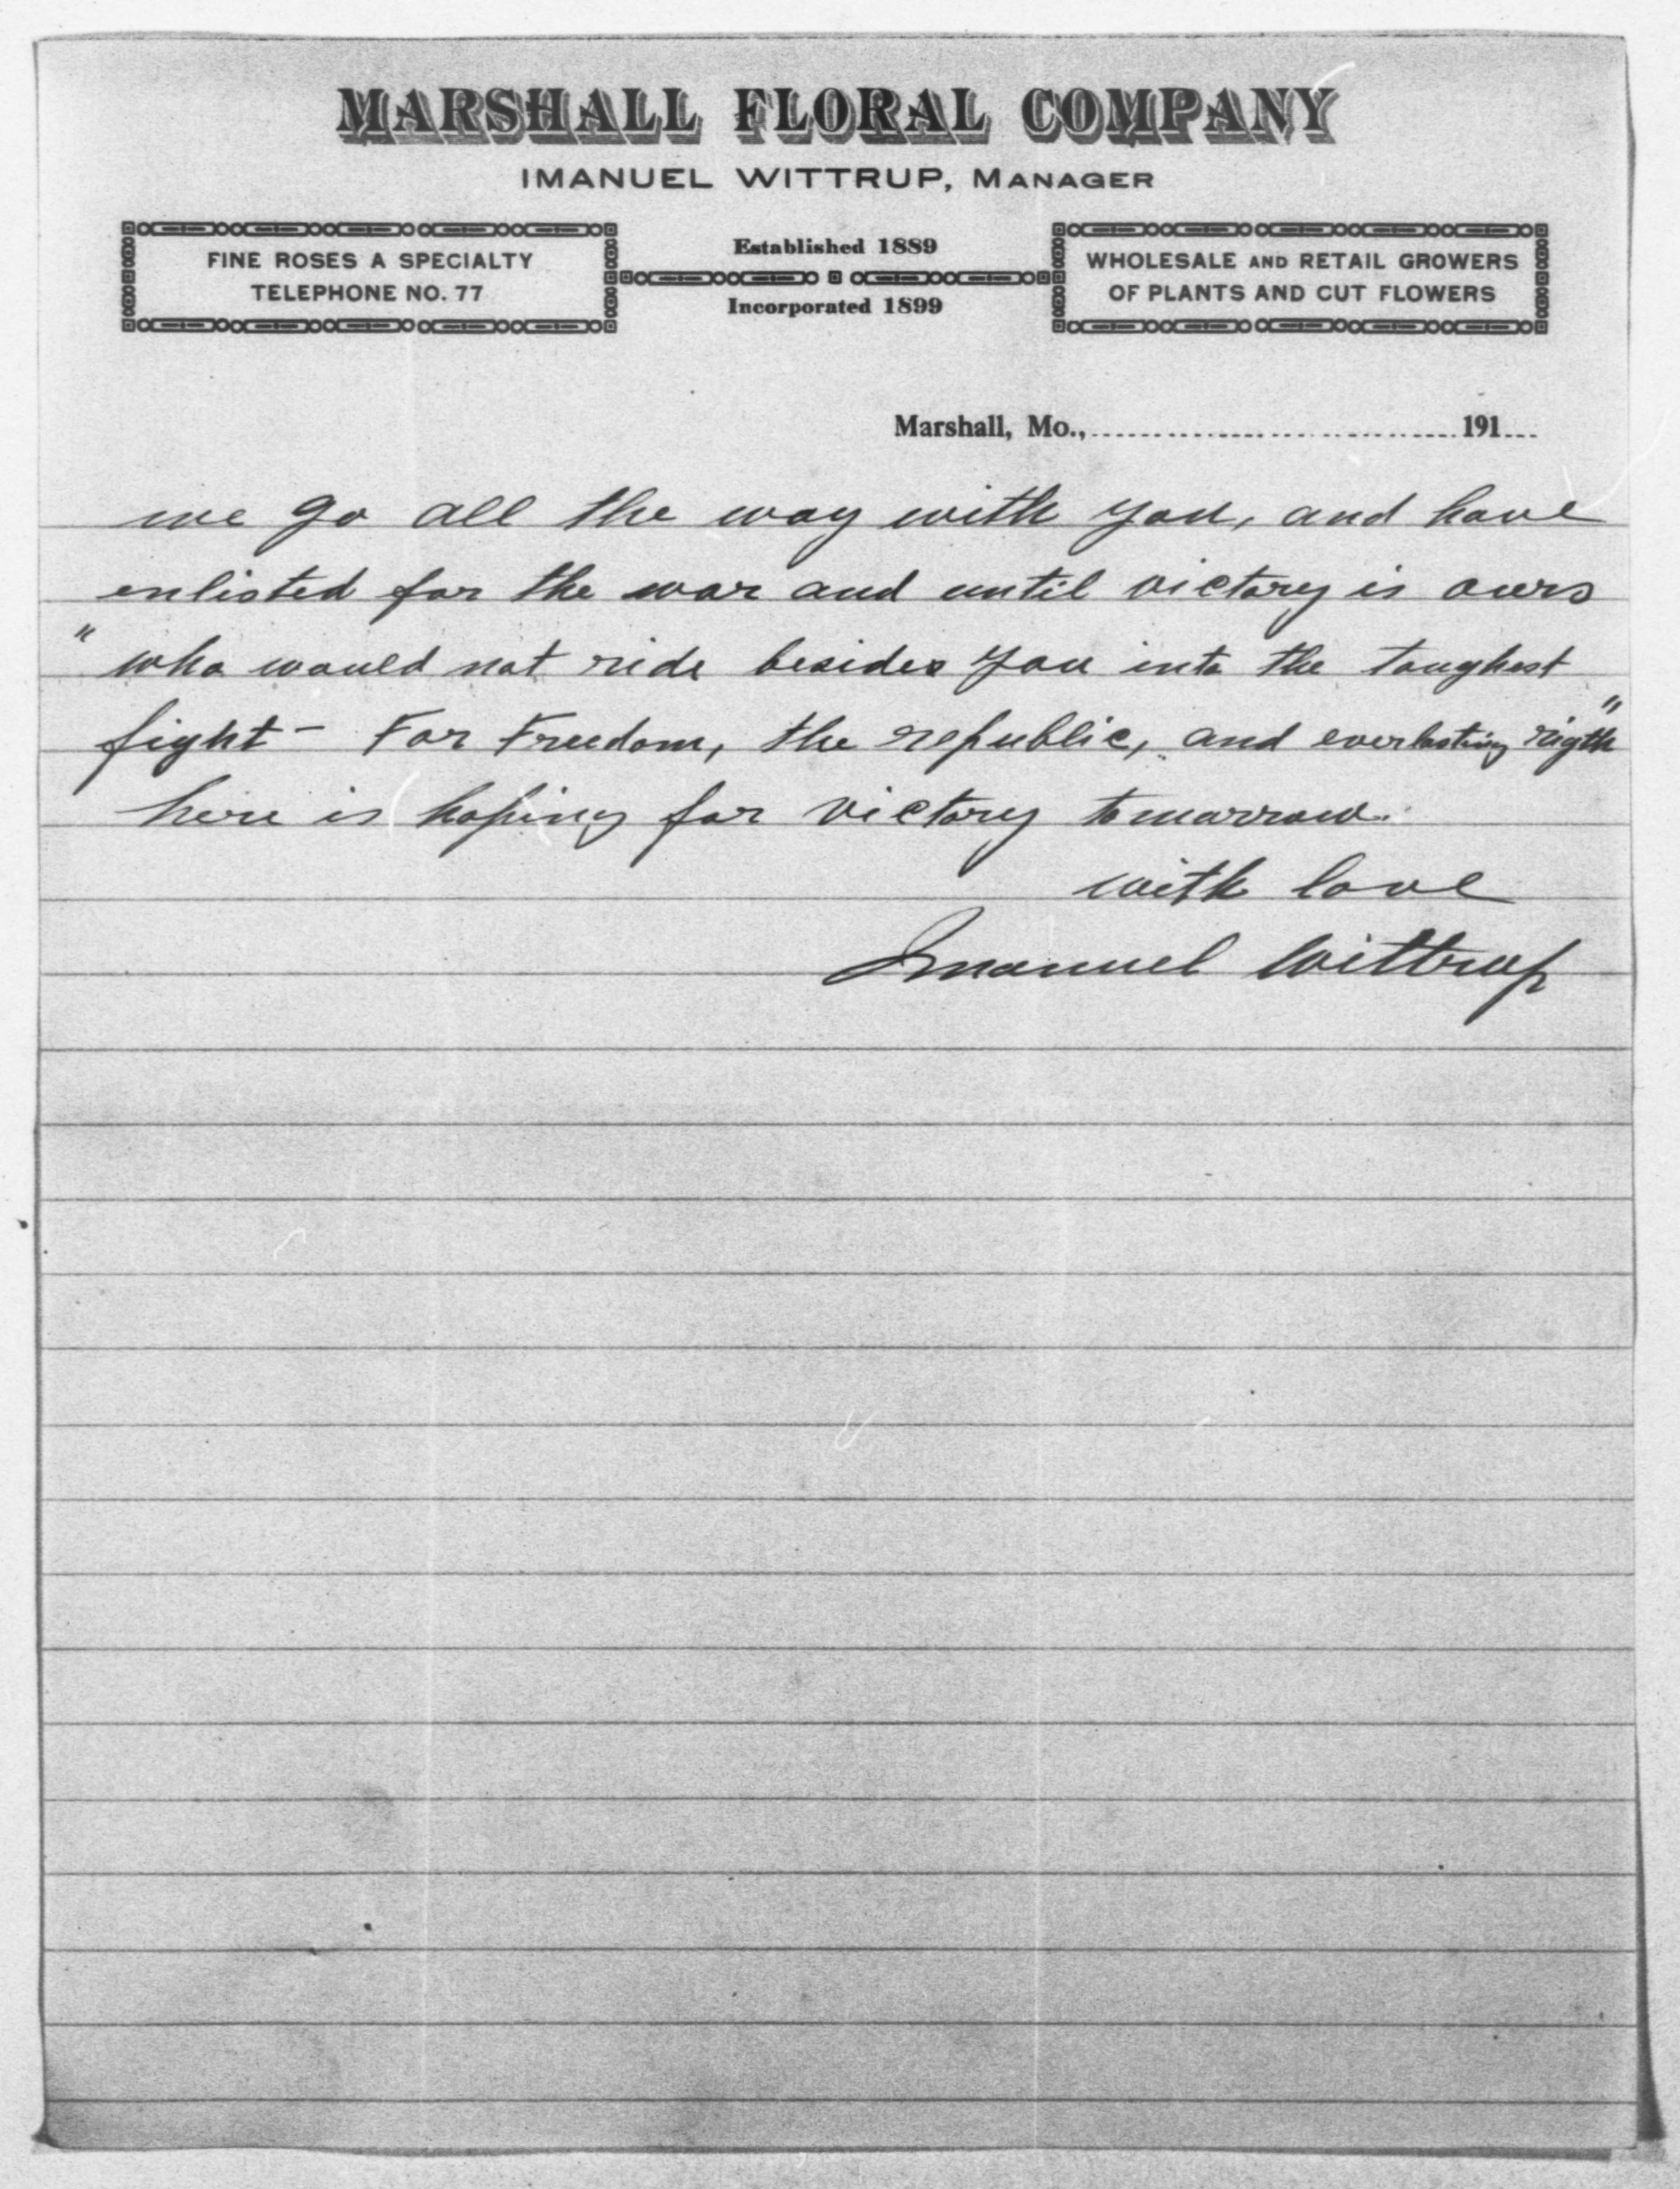 MARSHALL FLORAL COMPANY
IMANUEL WITTRUP, MANAGER
FINE ROSES A SPECIALTY
TELEPHONE NO. 77
Established 1889
Incorporated 1899
WHOLESALE AND RETAIL GROWERS
OF PLANTS AND CUT FLOWERS
Marshall, Mo., 191
we go all the way with you, and have
enlisted for the war and until victory is ours
"who would not ride besides you into the toughest
fight - For Freedom, the republic, and everlasting rigth"
here is hoping for victory tomorrow.
with love
Imanuel Wittrup